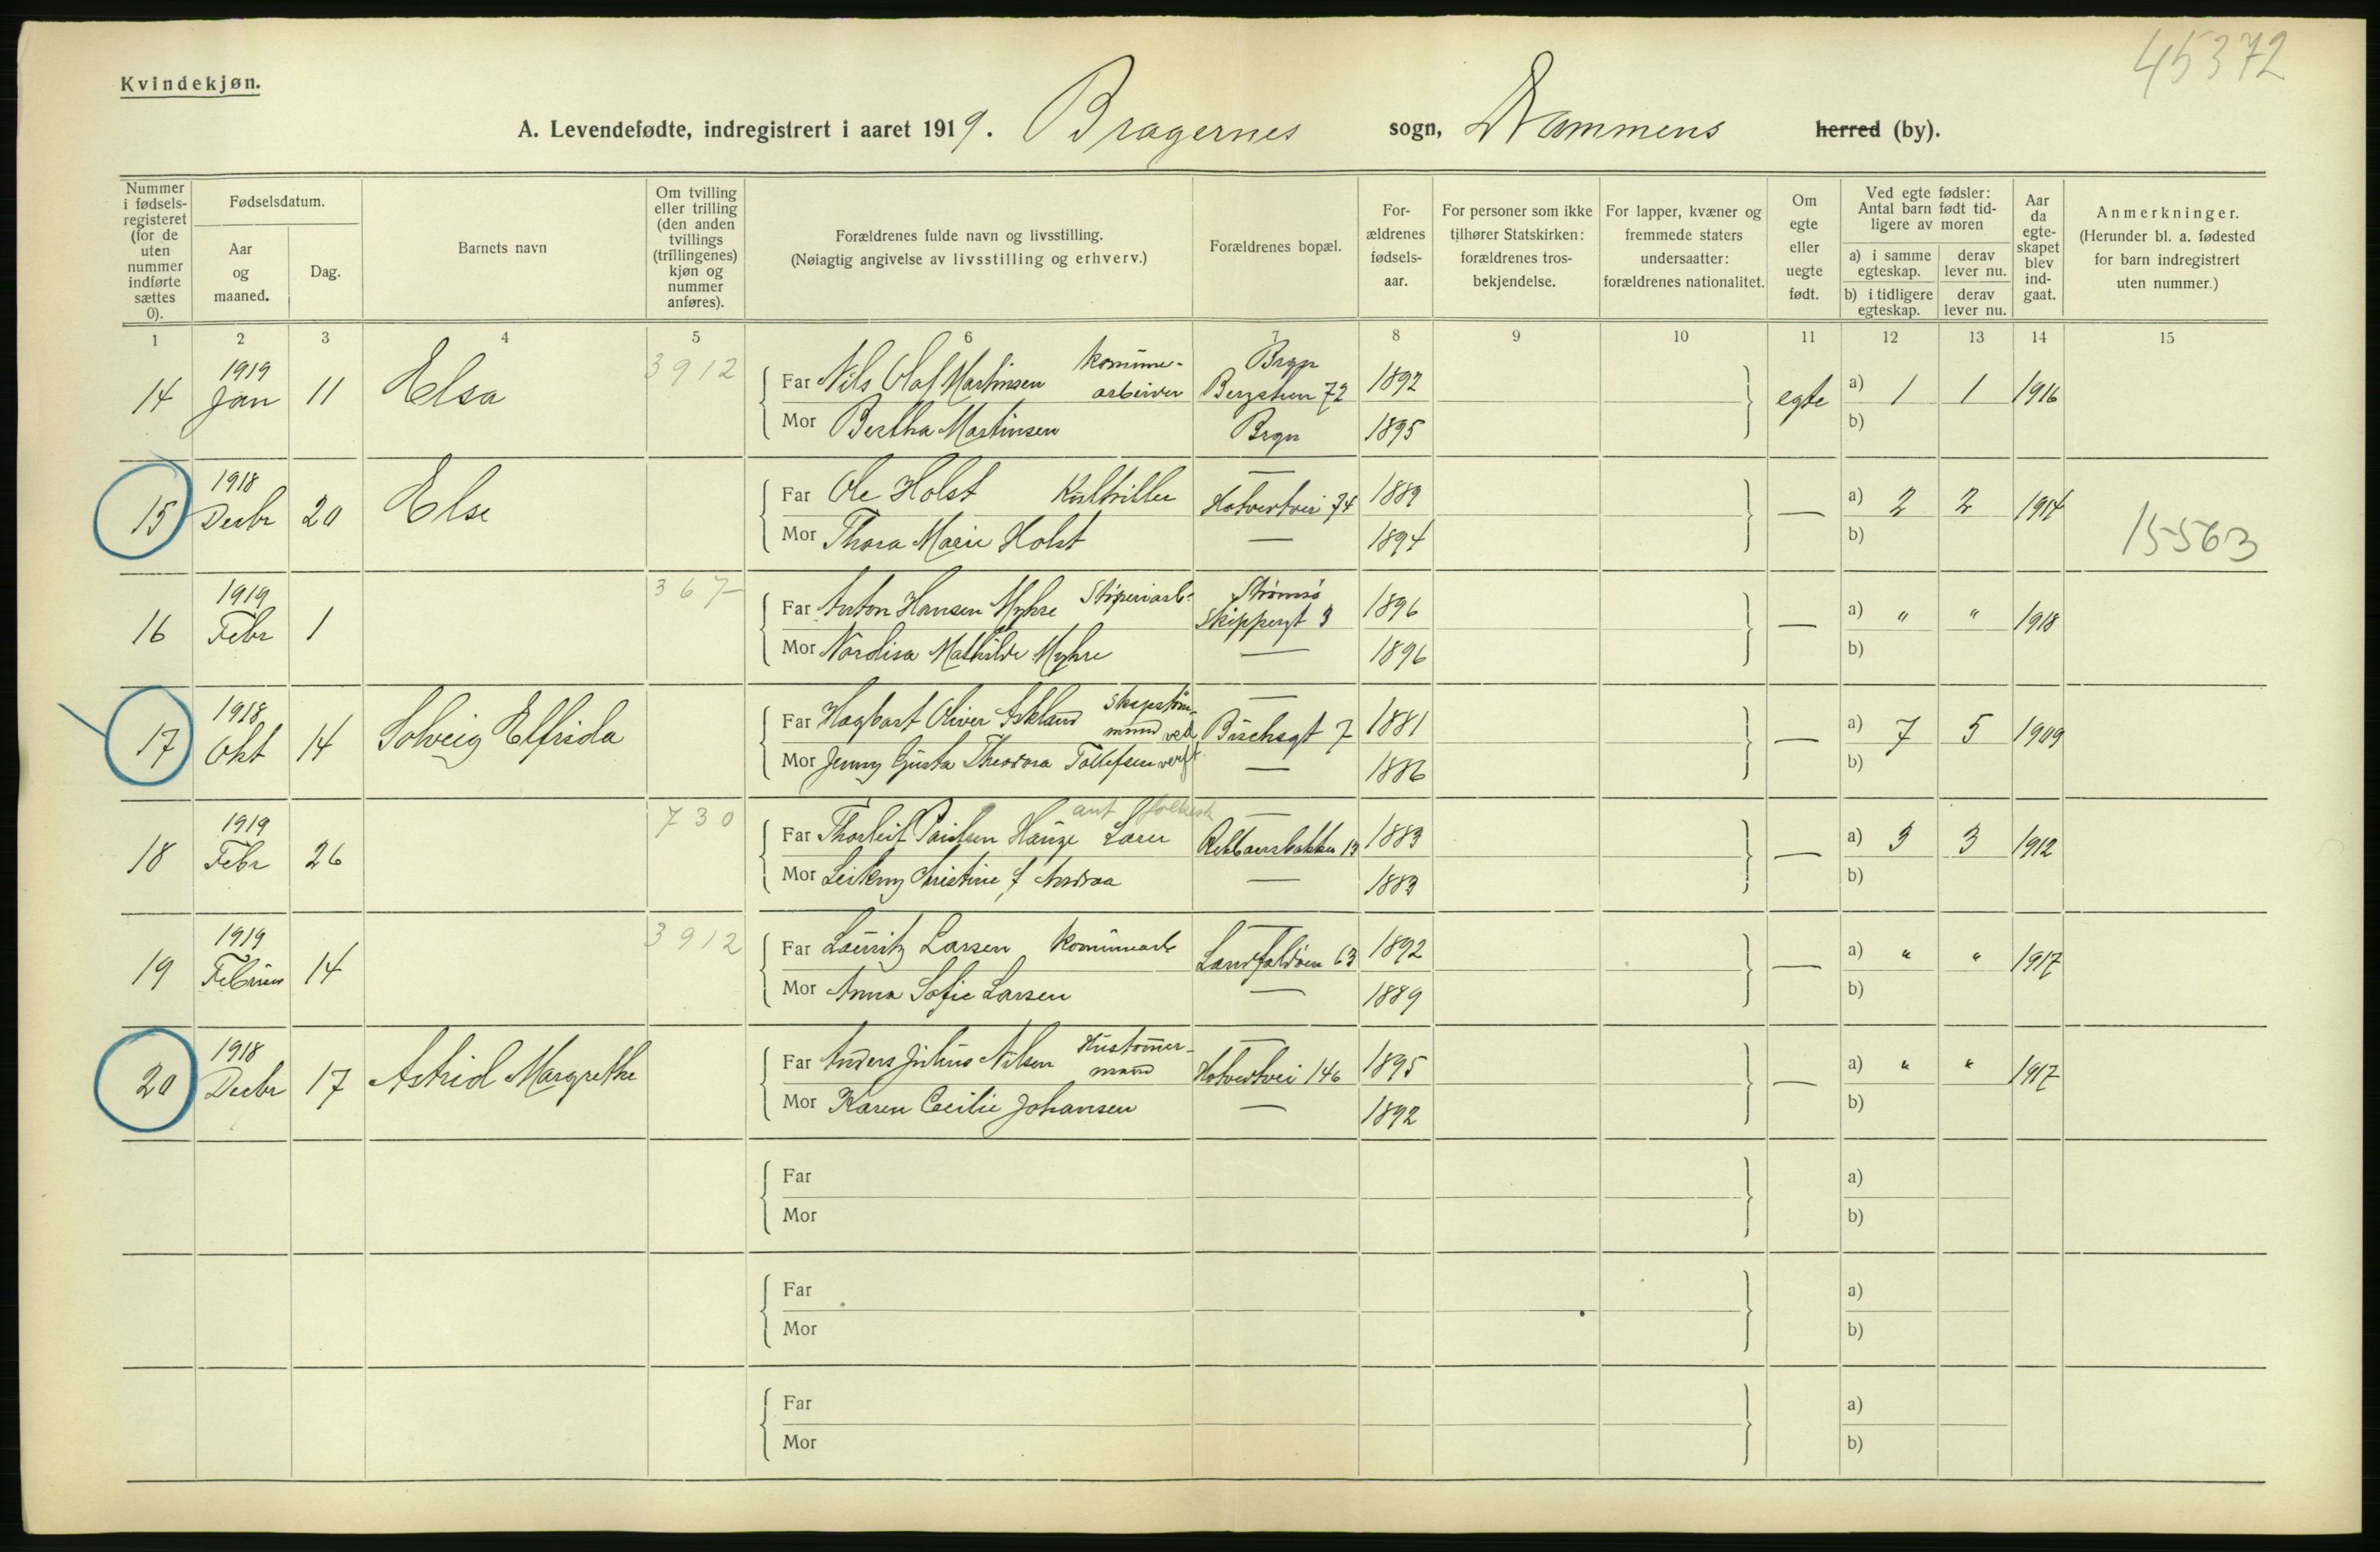 45372
Kvindekjøn.
A. Levendefødte, indregistrert i aaret 1919. Bragernes sogn, Drammens herred (by).
Nummer i fødsels-registeret (for de uten nummer indførte sættes 0).
Fødselsdatum.
Aar og maaned.
Dag.
Barnets navn
Om tvilling eller trilling (den anden tvillings (trillingenes) kjøn og nummer anføres).
Forældrenes fulde navn og livsstilling.
(Nøiagtig angivelse av livsstilling og erhverv.)
Forældrenes bopæl.
For-ældrenes fødsels-aar.
For personer som ikke tilhører Statskirken: forældrenes tros-bekjendelse.
For lapper, kvæner og fremmede staters undersaatter: forældrenes nationalitet.
Om egte eller uegte født.
Ved egte fødsler: Antal barn født tid-ligere av moren
a) i samme egteskap.
derav lever nu.
b) i tidligere egteskap.
derav lever nu.
Aar da egte-skapet blev ind-gaat.
Anmerkninger.
(Herunder bl. a. fødested for barn indregistrert uten nummer.)
1 2 3 4 5 6 7 8 9 10 11 12 13 14 15
14 1919 Jan 11 Elsa 3912 Far Nils Olaf Martinsen Kommune-arbeider Brgn Bergstien 72 1892 egte a) 1 1 1916
Mor Bertha Martinsen Brgn 1895 b)
15 1918 Decbr 20 Else Far Ole Holst — Hotvedtvei 74 1889 — a) 2 2 1914 15563
Mor Thora Marie Holst — 1894 b)
16 1919 Febr 1 367 Far Anton Hansen Myhre Støperiarb. Strømsø Skippergt 3 1896 — a) " " 1918
Mor Nordisa Mathilde Myhre — 1896 b)
17 1918 Okt 14 Solveig Elfrida Far Hagbart Oliver Askland Skipstøm-mand ved verft — Buschsgt 7 1881 — a) 7 5 1909
Mor Jenny Gusta Theodora Tollefsen — 1886 b)
18 1919 Febr 26 730 Far Thorleif Paulsen Hauge Lærer ant folkesk — 13 1883 — a) 3 3 1912
Mor Leikny Kristine f — 1883 b)
19 1919 Februar 14 3912 Far Lauritz Larsen Kommunearb — Landfaldøen 63 1892 — a) " " 1917
Mor Anna Sofie Larsen — 1889 b)
20 1918 Decbr 17 Astrid Margrethe Far Anders Julius Nilsen Hustømmer-mand — Hotvedtvei 146 1895 — a) " " 1917
Mor Karen Cecilie Johansen — 1892 b)
Far a)
Mor b)
Far a)
Mor b)
Far a)
Mor b)